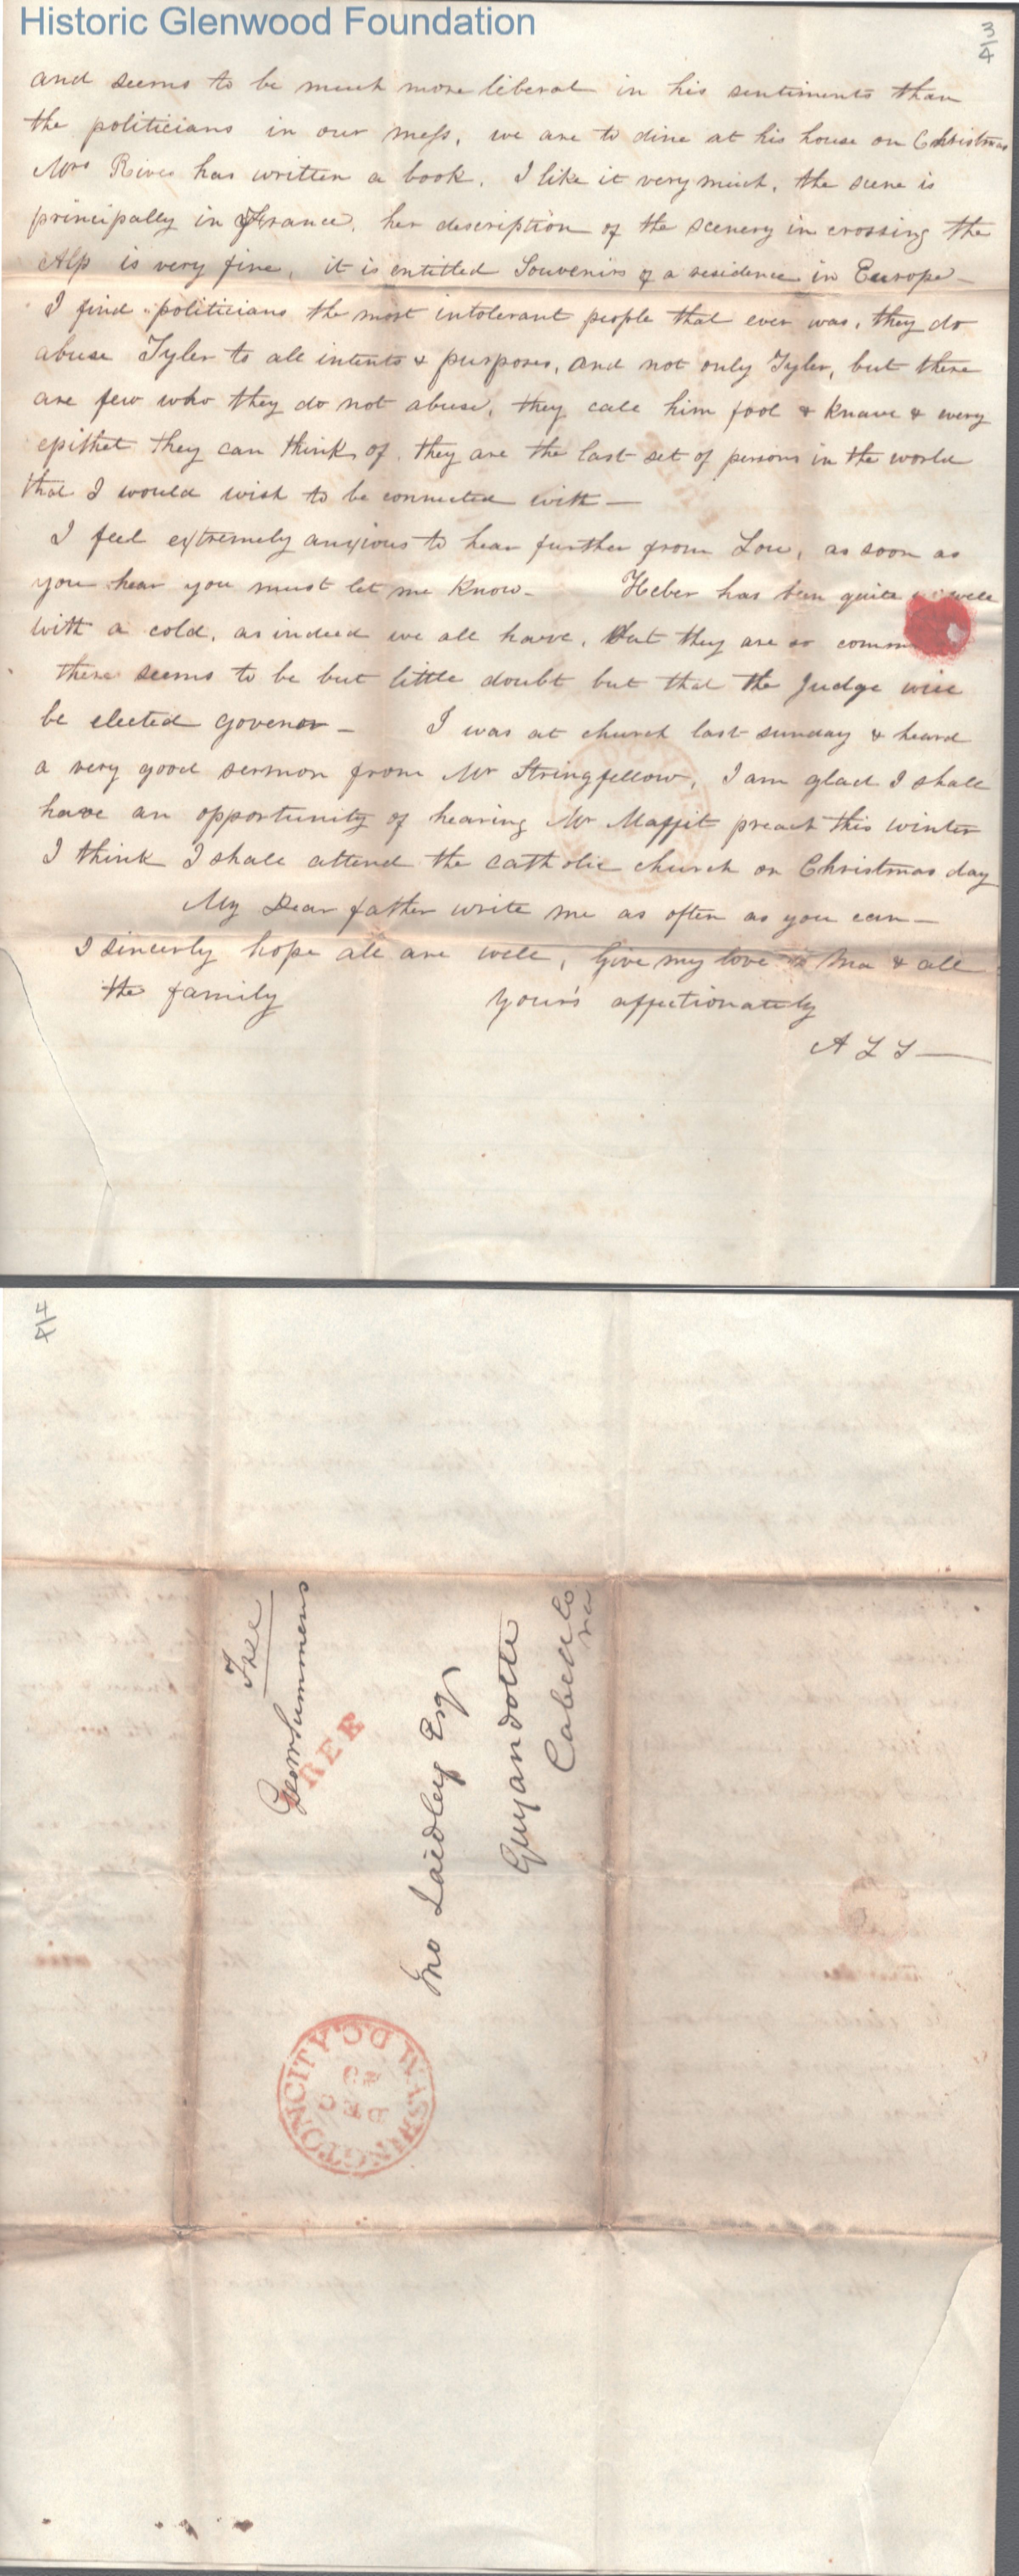 Historic Glenwood Foundation
3/4
and seems to be much more liberal in his sentiments than
the politicians in our mess, we are to dine at his house on Christmas
Mrs Rives has written a book. I like it very much, the scene is
principally in France, her description of the scenery in crossing the
Alp is very fine, it is entitled Souvenirs of a residence in Europe —
I find politicians the most intolerant people that ever was, they do
abuse Tyler to all intents & purposes, and not only Tyler, but there
are few who they do not abuse, they call him fool & knave & every
epithet they can think of. they are the last set of persons in the world
that I would wish to be connected with —
I feel extremely anxious to hear further from Lou, as soon as
you hear you must let me know — Heber has been quite unwell
with a cold, as indeed we all have, but they are so common
there seems to be but little doubt but that the Judge will
be elected govenor — I was at church last sunday & heard
a very good sermon from Mr Stringfellow, I am glad I shall
have an opportunity of hearing Mr Maffit preach this winter
I think I shall attend the catholic church on Christmas day
My Dear father write me as often as you can —
I sincerly hope all are well, Give my love to Ma & all
the family your's affectionately
A L S —
4/4
Free
Geo W Summers
FREE
Jno Laidley Esq
Guyandotte
Cabell Co
Va
WASHINGTON CITY D.C.
DEC